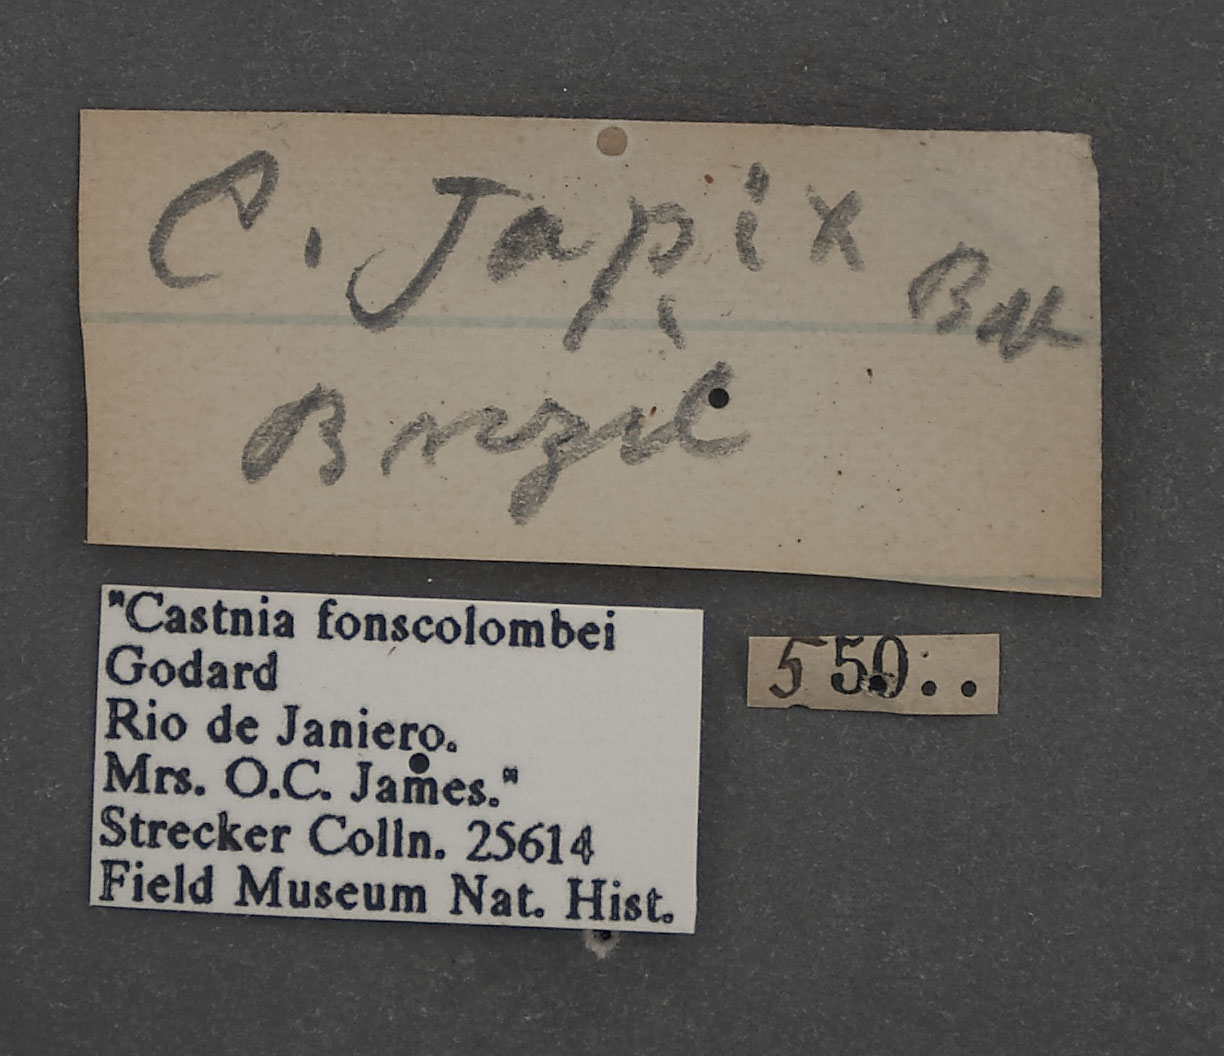 C. Japix
Brazil
"Castnia fonscolombei
Godard
Rio de Janiero.
Mrs. O.C. James."
Strecker Colln. 25614
Field Museum Nat. Hist.
559..